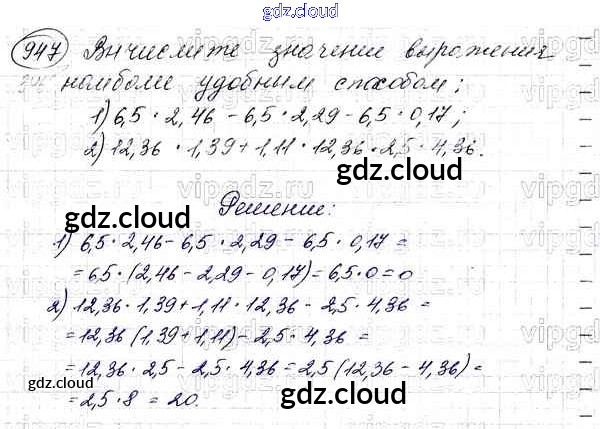 gdz.cloud
947 Вычислите значение выражения
наиболее удобным способом;
1) 6,5 · 2,46 – 6,5 · 2,29 – 6,5 · 0,17;
2) 12,36 · 1,39 + 1,11 · 12,36 · 2,5 · 4,36.
gdz.cloud
gdz.cloud
Решение:
1) 6,5 · 2,46 – 6,5 · 2,29 – 6,5 · 0,17 =
= 6,5 · (2,46 – 2,29 – 0,17) = 6,5 · 0 = 0
2) 12,36 · 1,39 + 1,11 · 12,36 – 2,5 · 4,36 =
= 12,36 (1,39 + 1,11) – 2,5 · 4,36 =
= 12,36 · 2,5 – 2,5 · 4,36 = 2,5 (12,36 – 4,36) =
gdz.cloud
gdz.cloud
= 2,5 · 8 = 20.